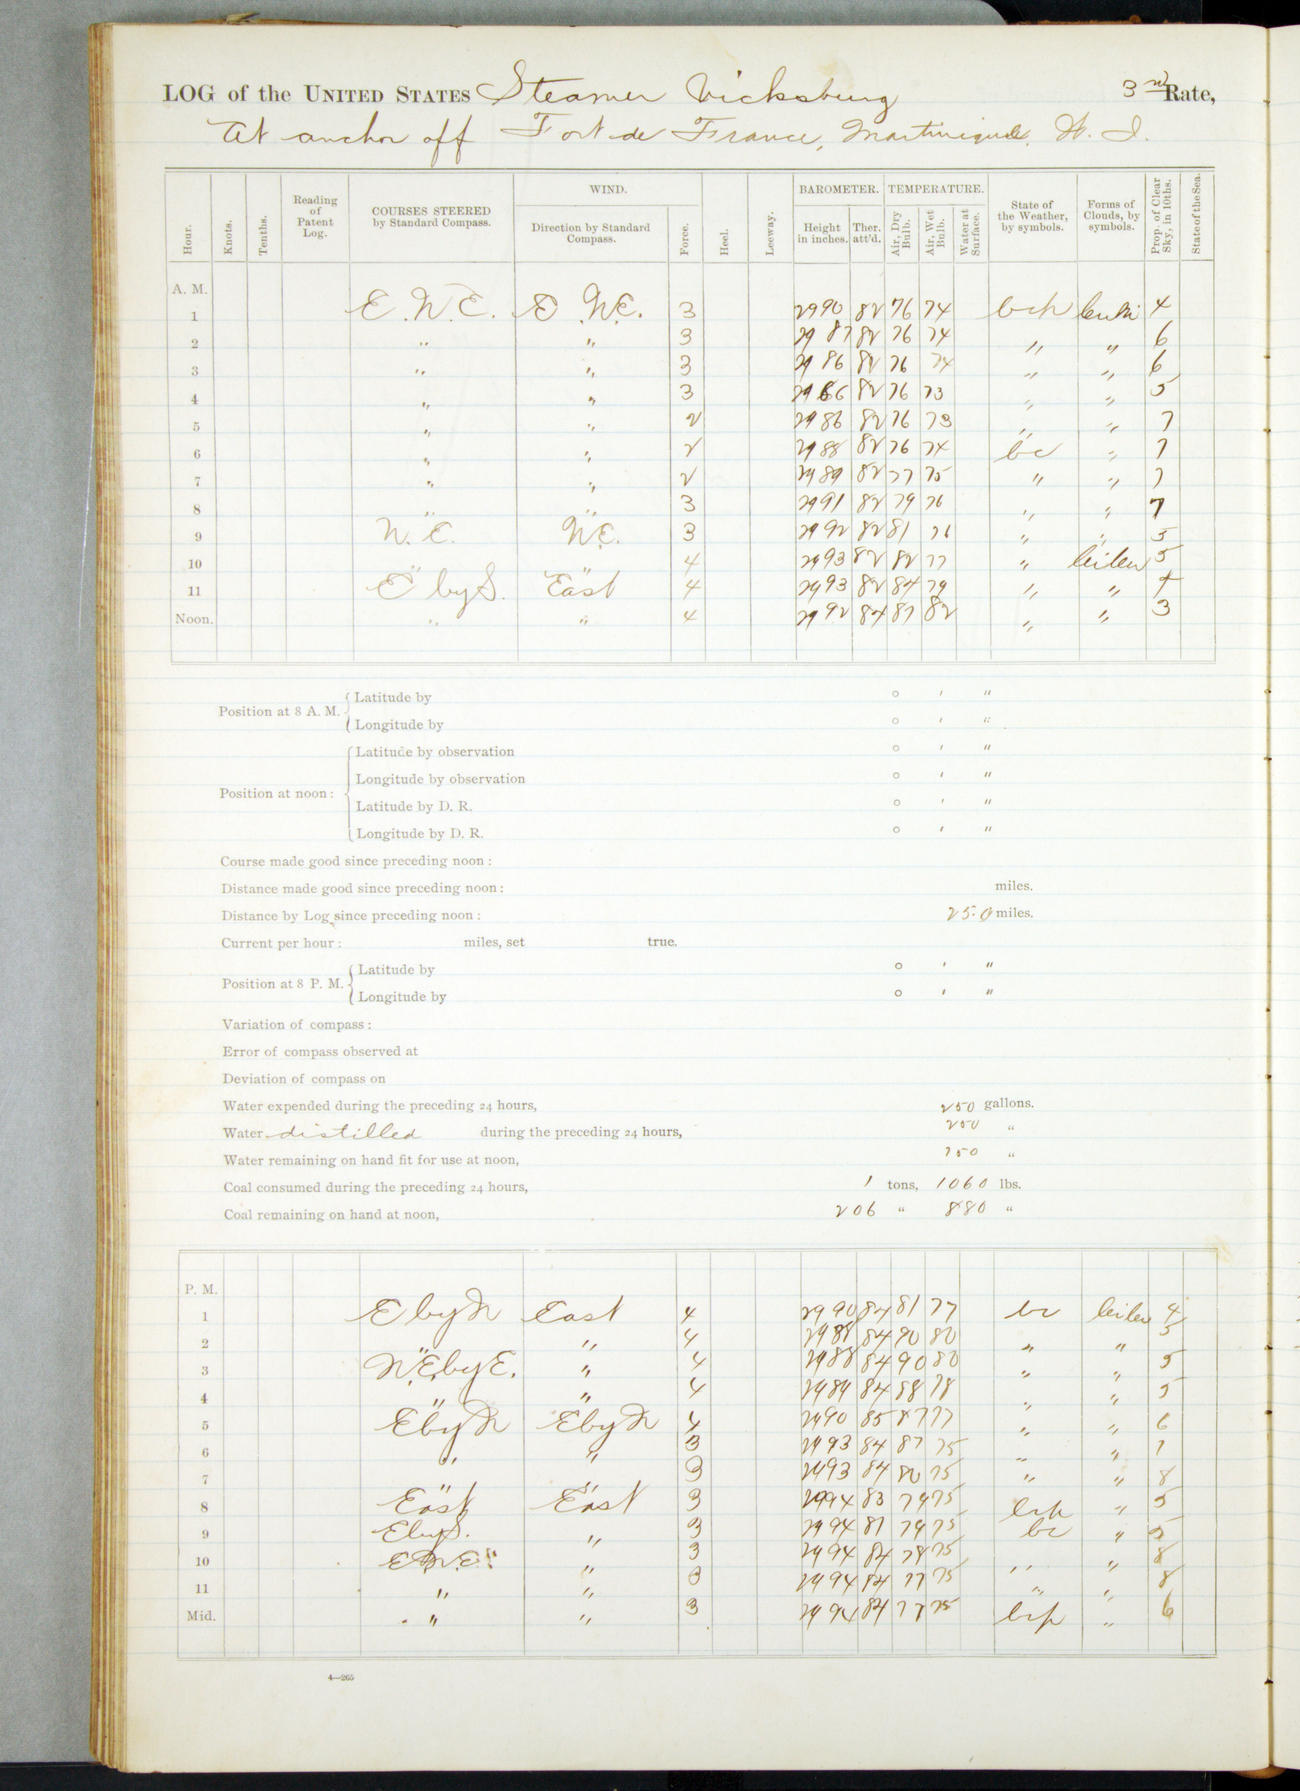 LOG of the UNITED STATES Steamer Vicksburg 3rd Rate,
At anchor off Fort de France, Martinique, W. I.
Hour. Knots. Tenths. Reading of Patent Log. COURSES STEERED by Standard Compass. WIND. Direction by Standard Compass. Force. Heel. Leeway. BAROMETER. Height in inches. Ther. att'd. TEMPERATURE. Air, Dry Bulb. Air, Wet Bulb. Water at Surface. State of the Weather, by symbols. Forms of Clouds, by symbols. Prop. of Clear Sky, in 10ths. State of the Sea.
A. M.
1 E.N.E. E.N.E. 3 29 90 82 76 74 bch 4
2 " " 3 29 87 82 76 74 " " 6
3 " " 3 29 86 82 76 74 " " 6
4 " " 3 29 86 82 76 73 " " 5
5 " " 2 29 86 82 76 73 " " 7
6 " " 2 29 88 82 76 74 bc " 7
7 " " 2 29 89 82 77 75 " " 7
8 " " 3 29 91 82 79 76 " " 7
9 N.E. N.E. 3 29 92 82 81 76 " " 5
10 " " 4 29 93 82 82 77 " 5
11 E by S. East 4 29 93 82 84 79 " "
Noon. " " 4 29 92 84 87 82 " " 3
Position at 8 A. M. Latitude by ° ' "
Longitude by ° ' "
Position at noon: Latitude by observation ° ' "
Longitude by observation ° ' "
Latitude by D. R. ° ' "
Longitude by D. R. ° ' "
Course made good since preceding noon:
Distance made good since preceding noon: miles.
Distance by Log since preceding noon: 25.0 miles.
Current per hour: miles, set true.
Position at 8 P. M. Latitude by ° ' "
Longitude by ° ' "
Variation of compass:
Error of compass observed at
Deviation of compass on
Water expended during the preceding 24 hours, 250 gallons.
Water distilled during the preceding 24 hours, 200 "
Water remaining on hand fit for use at noon, 750 "
Coal consumed during the preceding 24 hours, 1 tons, 1060 lbs.
Coal remaining on hand at noon, 206 " 880 "
P. M.
1 E by N East 4 29 90 84 81 77 bc 4
2 " " 4 29 88 84 90 80 " " 5
3 N.E. by E. " 4 29 88 84 90 80 " " 5
4 " " 4 29 89 84 88 78 " " 5
5 E by N E by N 4 29 90 85 87 77 " " 6
6 " " 3 29 93 84 87 75 " " 7
7 " " 3 29 93 84 80 75 " " 8
8 East East 3 29 94 83 79 75 bcp " 5
9 E by S. " 3 29 94 81 79 75 bc " 5
10 E.N.E. " 3 29 94 84 78 75 " " 8
11 " " 3 29 94 84 77 75 " " 8
Mid. " " 3 29 94 84 77 75 bcp " 6
4—265